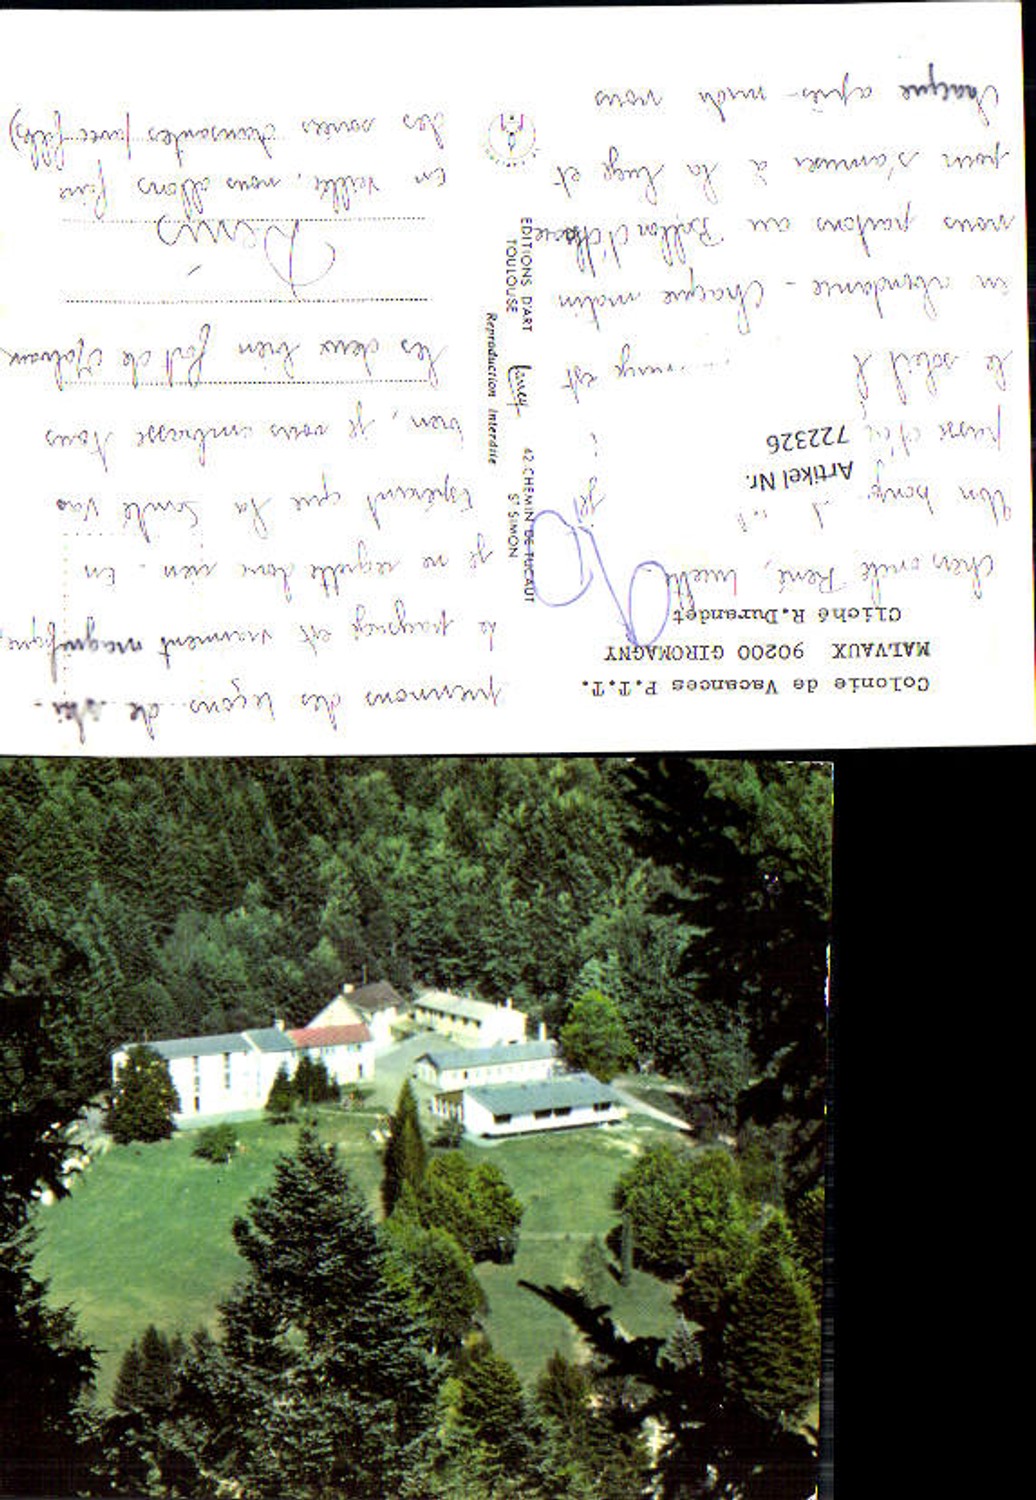 Colonie de Vacances P.T.T.
MALVAUX 90200 GIROMAGNY
Cliché R.Durandet
Cher oncle René, Lucette
Un bonj
passé d'ici
le soleil
neige est
en abondance - Chaque matin
nous partons au Ballon d'Alsace
pour s'amuser à la luge et
Chaque après-midi nous
Artikel Nr.
722326
EDITIONS D'ART
TOULOUSE
42 CHEMIN DE TUCAUT
St SIMON
Reproduction Interdite
prennons des leçons de ski.
Le paysage est vraiment magnifique,
je ne regrette donc rien. En
Espérant que la santé vas
bien, je vous embrasse tous
les deux bien fort de Malvaux
Denis
En veillée, nous allons faire
des soirées dansantes (avec filles)